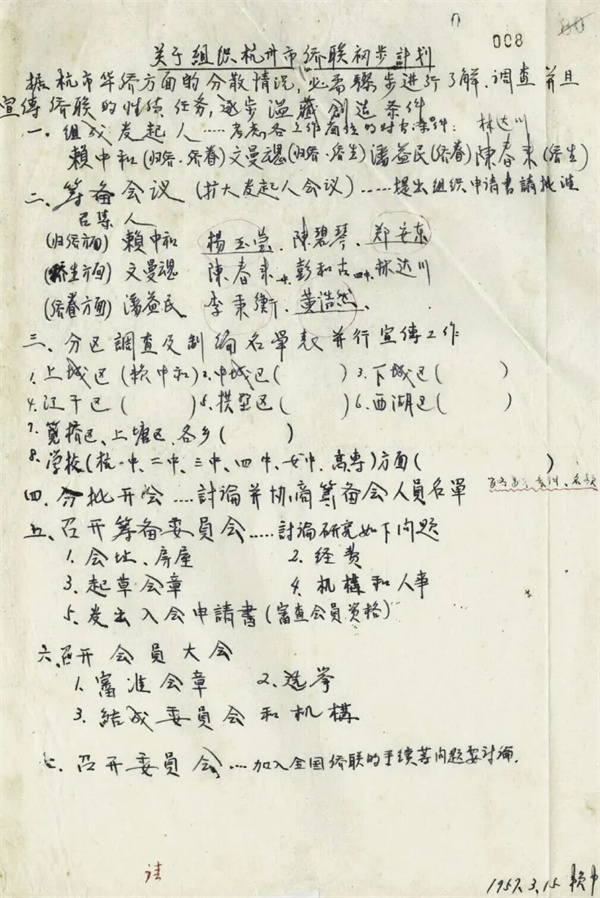 008
关于組织杭州市侨联初步計划
据杭市华侨方面的分散情况,必需驟步进行了解、調查并且
宣傳侨联的性质任务,逐步 創造条件
一、組成发起人……各工作崗位的对象条件: 林达川
賴中和(归侨·侨眷)文曼魂(归侨·侨生)潘益民(侨眷)陳春来(侨生)
二、筹备会议(扩大发起人会议)……提出组织申请書請批准
召集人
(归侨方面) 賴中和 楊玉瑩、陳碧琴、郑安东
(侨生方面) 文曼魂 陳春来、彭和吉、林达川
(侨眷方面) 潘益民 李秉衡、黄浩然
三、分区調查及制编名單表并行宣傳工作
1.上城区(赖中和) 2.中城区( ) 3.下城区( )
4.江干区( ) 5.拱墅区( ) 6.西湖区( )
7.笕橋区、上塘区、各乡( )
8.学校(杭一中、二中、三中、四中、女中、高专)方面( )
四、分批开会……討論并协商筹备会人員名單
五、召开筹备委員会……討論研究如下问題
1.会址、房屋 2.经费
3.起草会章 4.机構和人事
5.发出入会申請書(審查会員资格)
六、召开会員大会
1.審准会章 2.选举
3.結成委員会和机構
七、召开委員会……加入全国侨联的手续等问題要討論.
1957.3.15 赖中